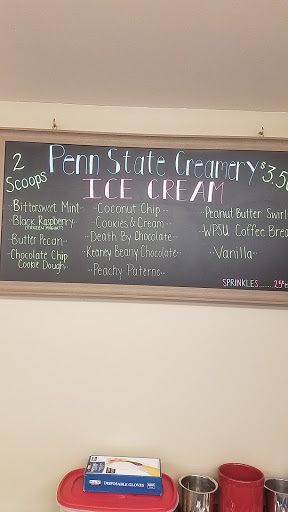 2 Scoops
Penn State Creamery
$3.50
ICE CREAM
-Bittersweet Mint-
-Black Raspberry-
(FROZEN YOGURT)
-Butter Pecan-
-Chocolate Chip
Cookie Dough-
-Coconut Chip-
-Cookies & Cream-
-Death By Chocolate-
-Keeney Beany Chocolate-
-Peachy Paterno-
-Peanut Butter Swirl
-WPSU Coffee Brea
-Vanilla-
SPRINKLES......25¢
DISPOSABLE GLOVES